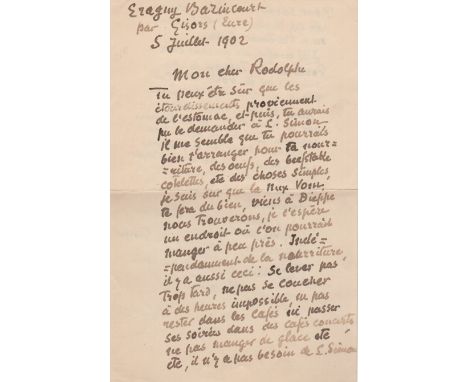 Eragny Bazincourt
par Gisors (Eure)
5 Juillet 1902
Mon cher Rodolphe
Tu peux être sûr que les
étourdissements proviennent
de l'estomac, et puis, tu aurais
pu le demander à L. Simon
il me semble que tu pourrais
bien t'arranger pour ta nour=
=riture, des oeufs, des beefstable
cotelettes, etc des choses simples,
je suis sur que la Nux Vom.
te fera du bien, viens à Dieppe
nous trouverons, je l'espère
un endroit où l'on pourrait
manger à peu près. Indé=
=pendamment de la nourriture,
il y a aussi ceci: Se lever pas
Trop tard, ne pas se coucher
à des heures impossible, ne pas
rester dans les cafés ni passer
ses soirées dans des cafés concerts
ne pas manger de glace etc
etc, il n'y a pas besoin de L. Simon